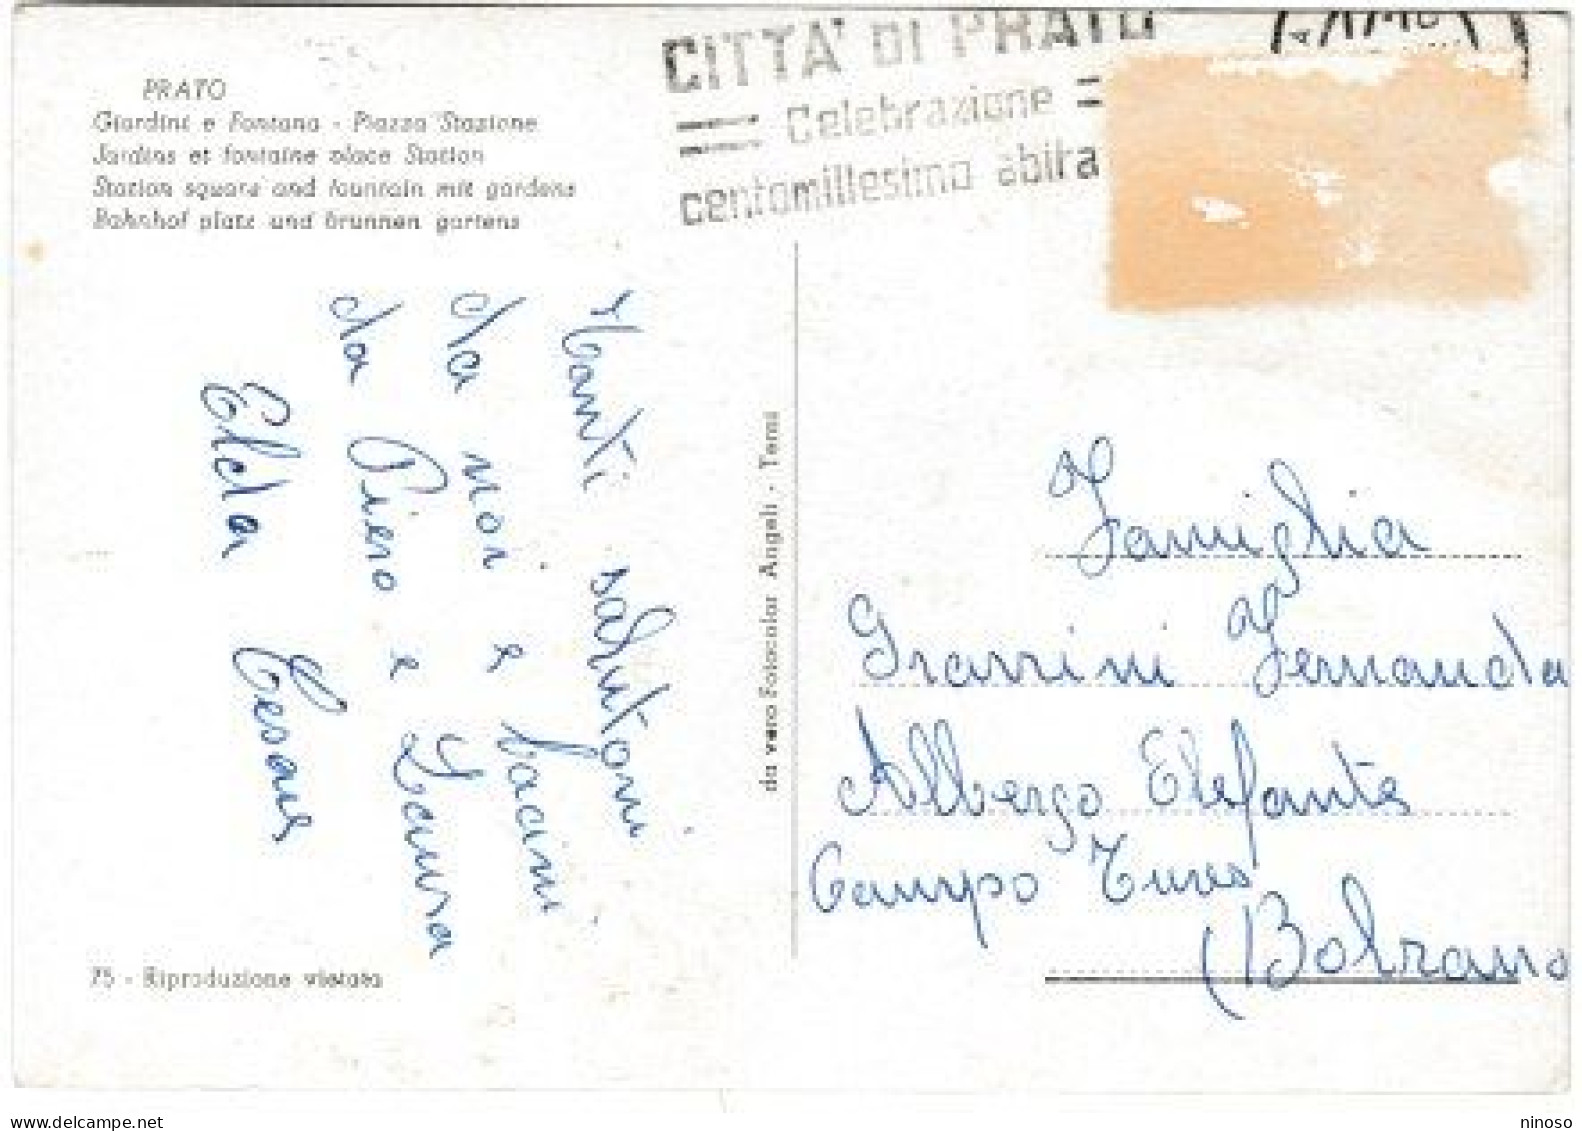 PRATO
Giardini e Fontana - Piazza Stazione
Jardins et fontaine place Station
Station square and fountain mit gardens
Bahnhof platz und brunnen gartens
CITTA' DI PRATO
Celebrazione
centomillesimo abita
Tanti salutoni
da noi e bacini
da Piero e Laura
Elda Cesare
da vero Fotocolor Angeli - Terni
Famiglia
Grassini Fernanda
Albergo Elefante
Campo Tures
(Bolzano
75 - Riproduzione vietata
www.delcampe.net
ninoso